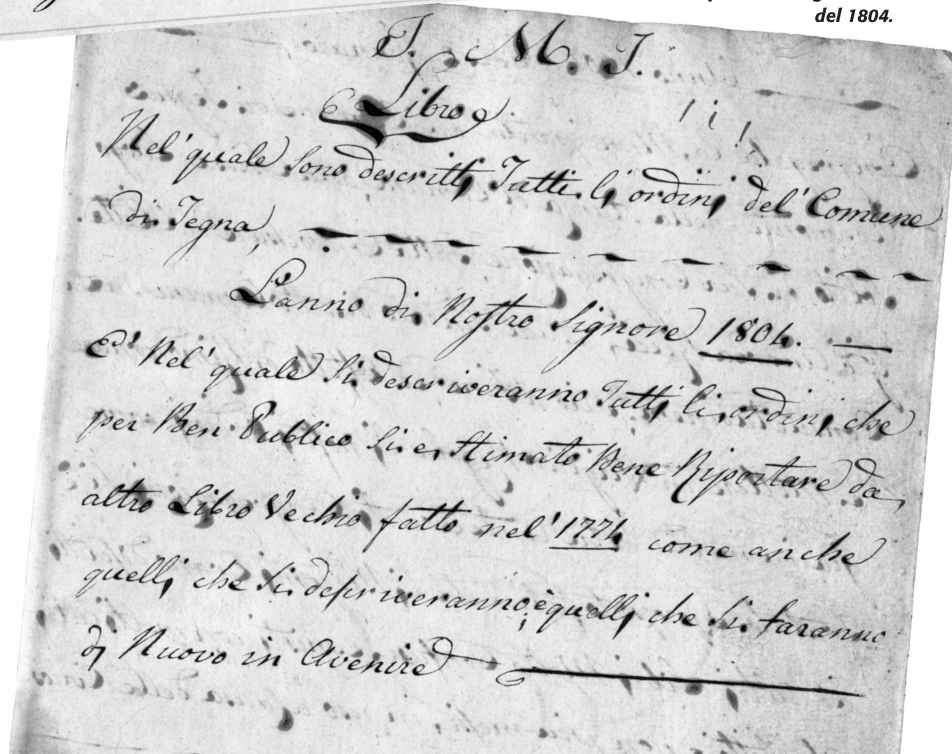 del 1804.
J. M. J.
Libro
Nel' quale sono descritti Tutti li ordini del' Comune
di Tegna,
L'anno di Nostro Signore 1804.
E' Nel' quale si descriveranno Tutti li ordini che
per Ben Publico si e stimato Bene Riportare da
altro Libro Vechio fatto nel' 1774 come anche
quelli che si descriveranno, è quelli che si faranno
di Nuovo in Avenire